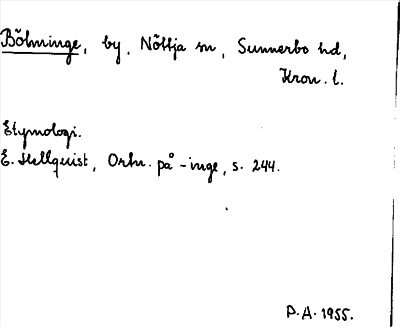 Bölminge, by, Nöttja sn, Sunnerbo hd,
Kron. l.
Etymologi.
E. Hellquist, Ortn. på -inge, s. 244.
P.A. 1955.